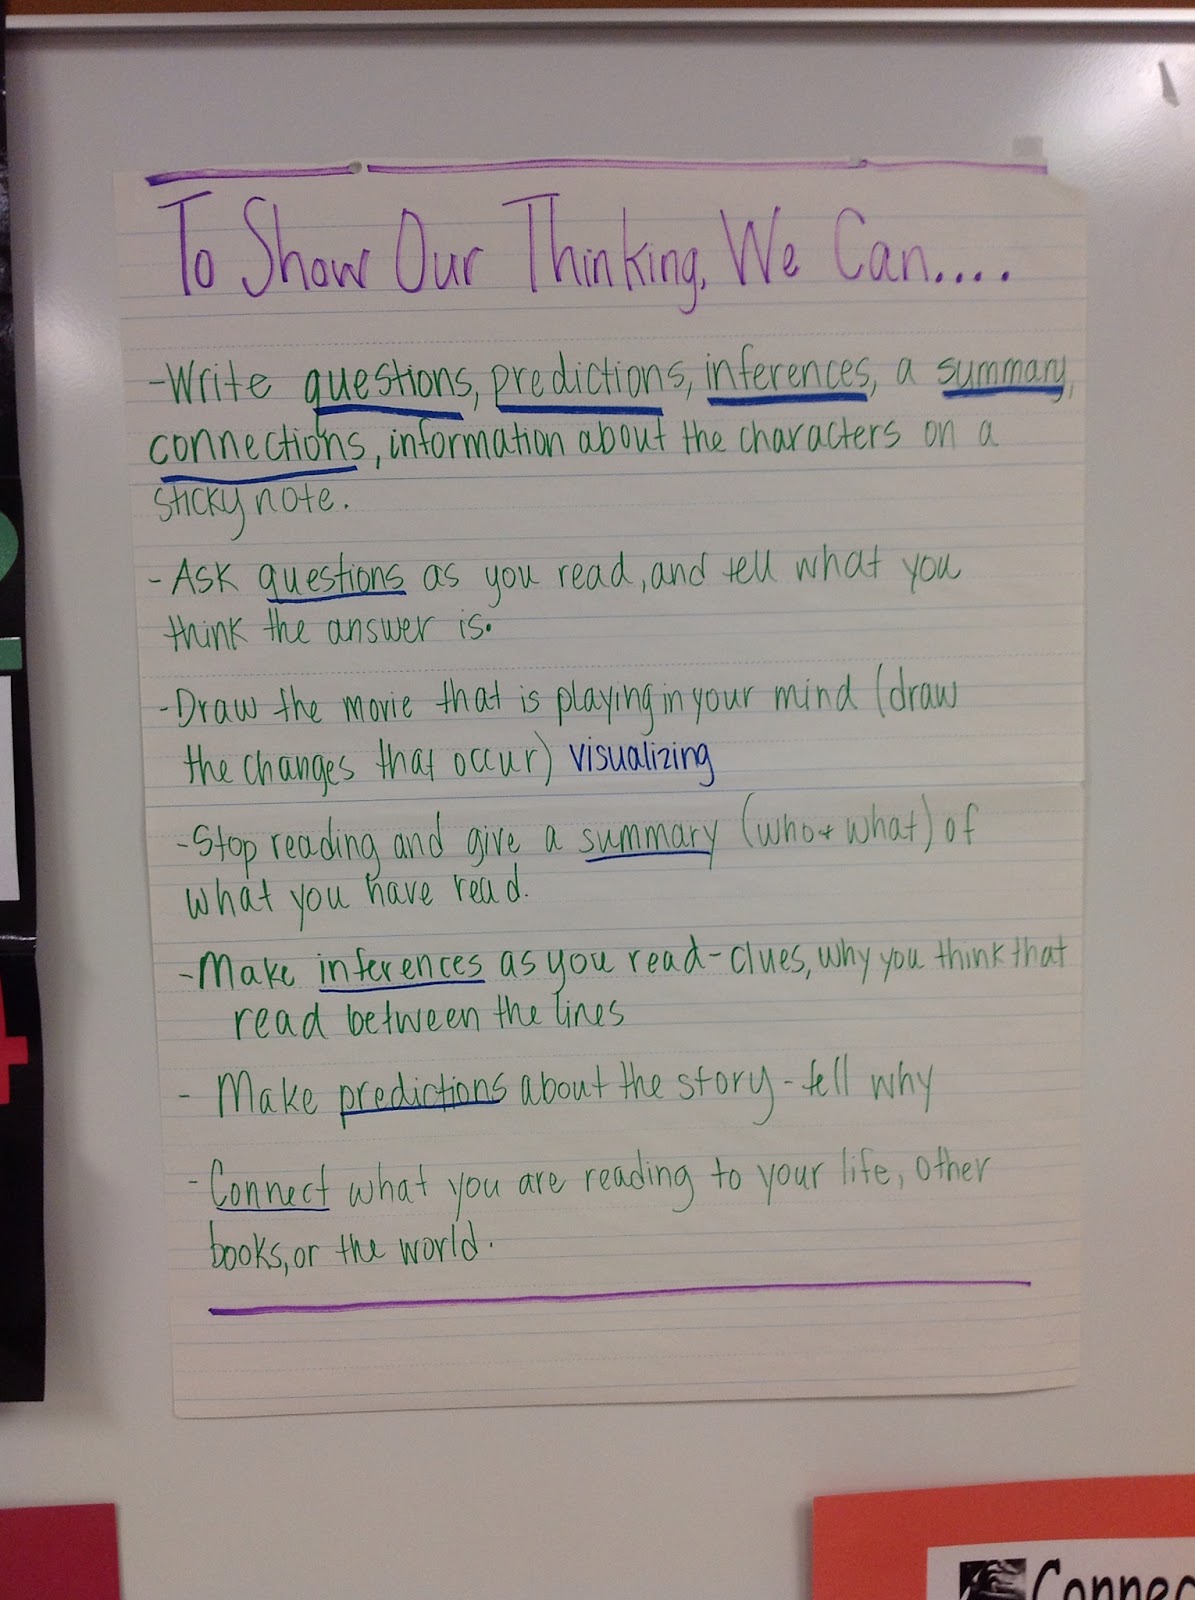 To Show Our Thinking, We Can....
-Write questions, predictions, inferences, a summary,
connections, information about the characters on a
sticky note.
- Ask questions as you read, and tell what you
think the answer is.
-Draw the movie that is playing in your mind (draw
the changes that occur) visualizing
-Stop reading and give a summary (who + what) of
what you have read.
-Make inferences as you read-clues, why you think that
read between the lines
- Make predictions about the story-tell why
- Connect what you are reading to your life, other
books, or the world.